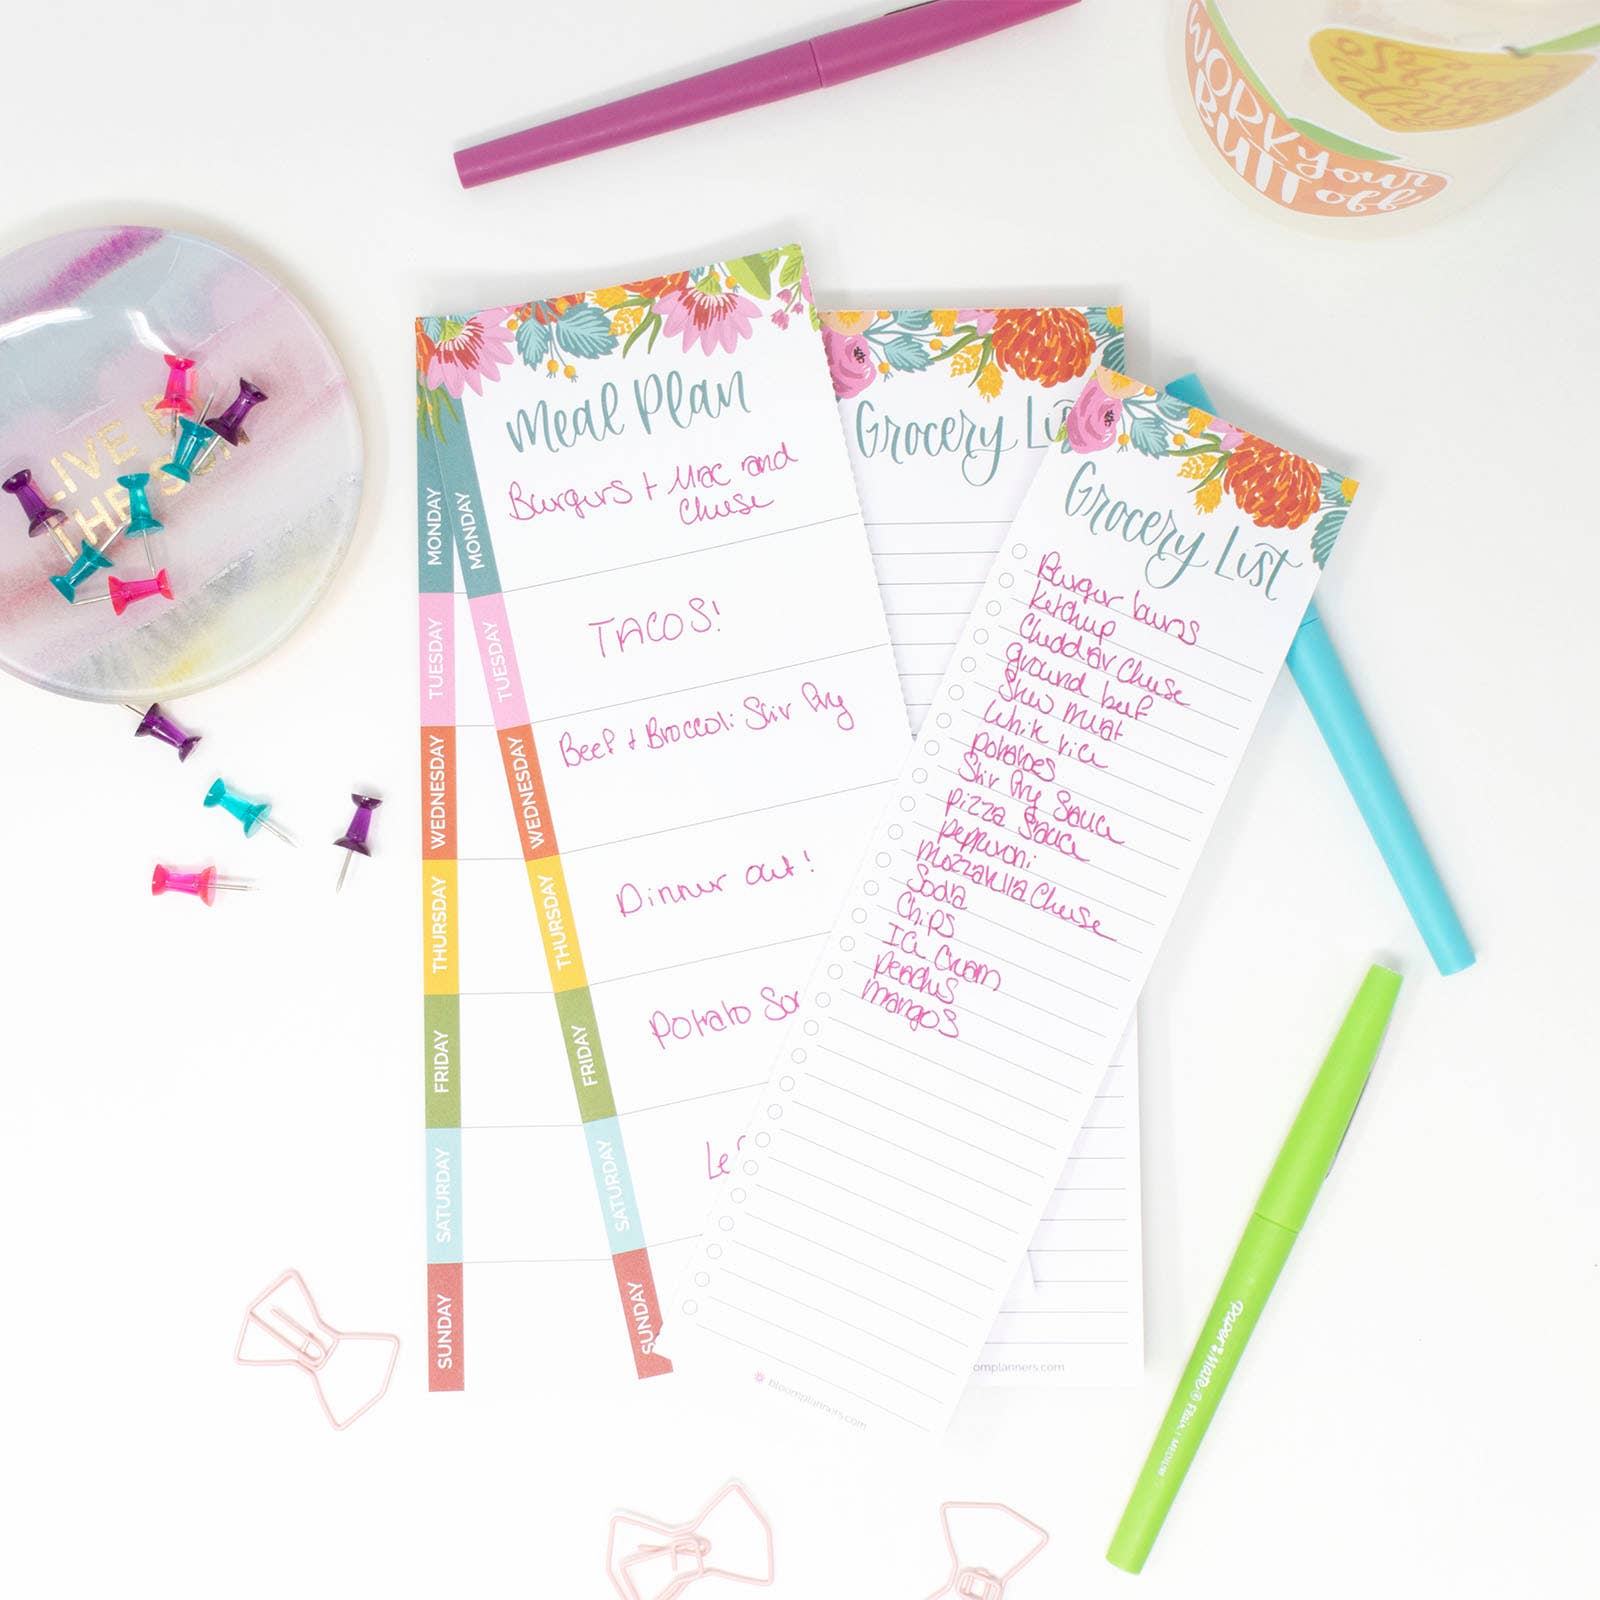 WORK your
BUTT off
LIVE
THE SUN
Meal Plan
MONDAY
MONDAY
Burgers + Mac and
Cheese
TUESDAY
TUESDAY
TACOS!
WEDNESDAY
WEDNESDAY
Beef + Broccoli Stir Fry
THURSDAY
THURSDAY
Dinner out!
FRIDAY
FRIDAY
Potato So
SATURDAY
SATURDAY
Le
SUNDAY
SUNDAY
Grocery Lis
omplanners.com
Grocery List
Burger buns
Ketchup
Cheddar Cheese
ground beef
Stew meat
White rice
potatoes
Stir Fry Sauce
pizza Sauce
pepperoni
Mozzarella Cheese
Soda
Chips
Ice Cream
Peaches
mangos
bloomplanners.com
Paper Mate FLAIR | MEDIUM